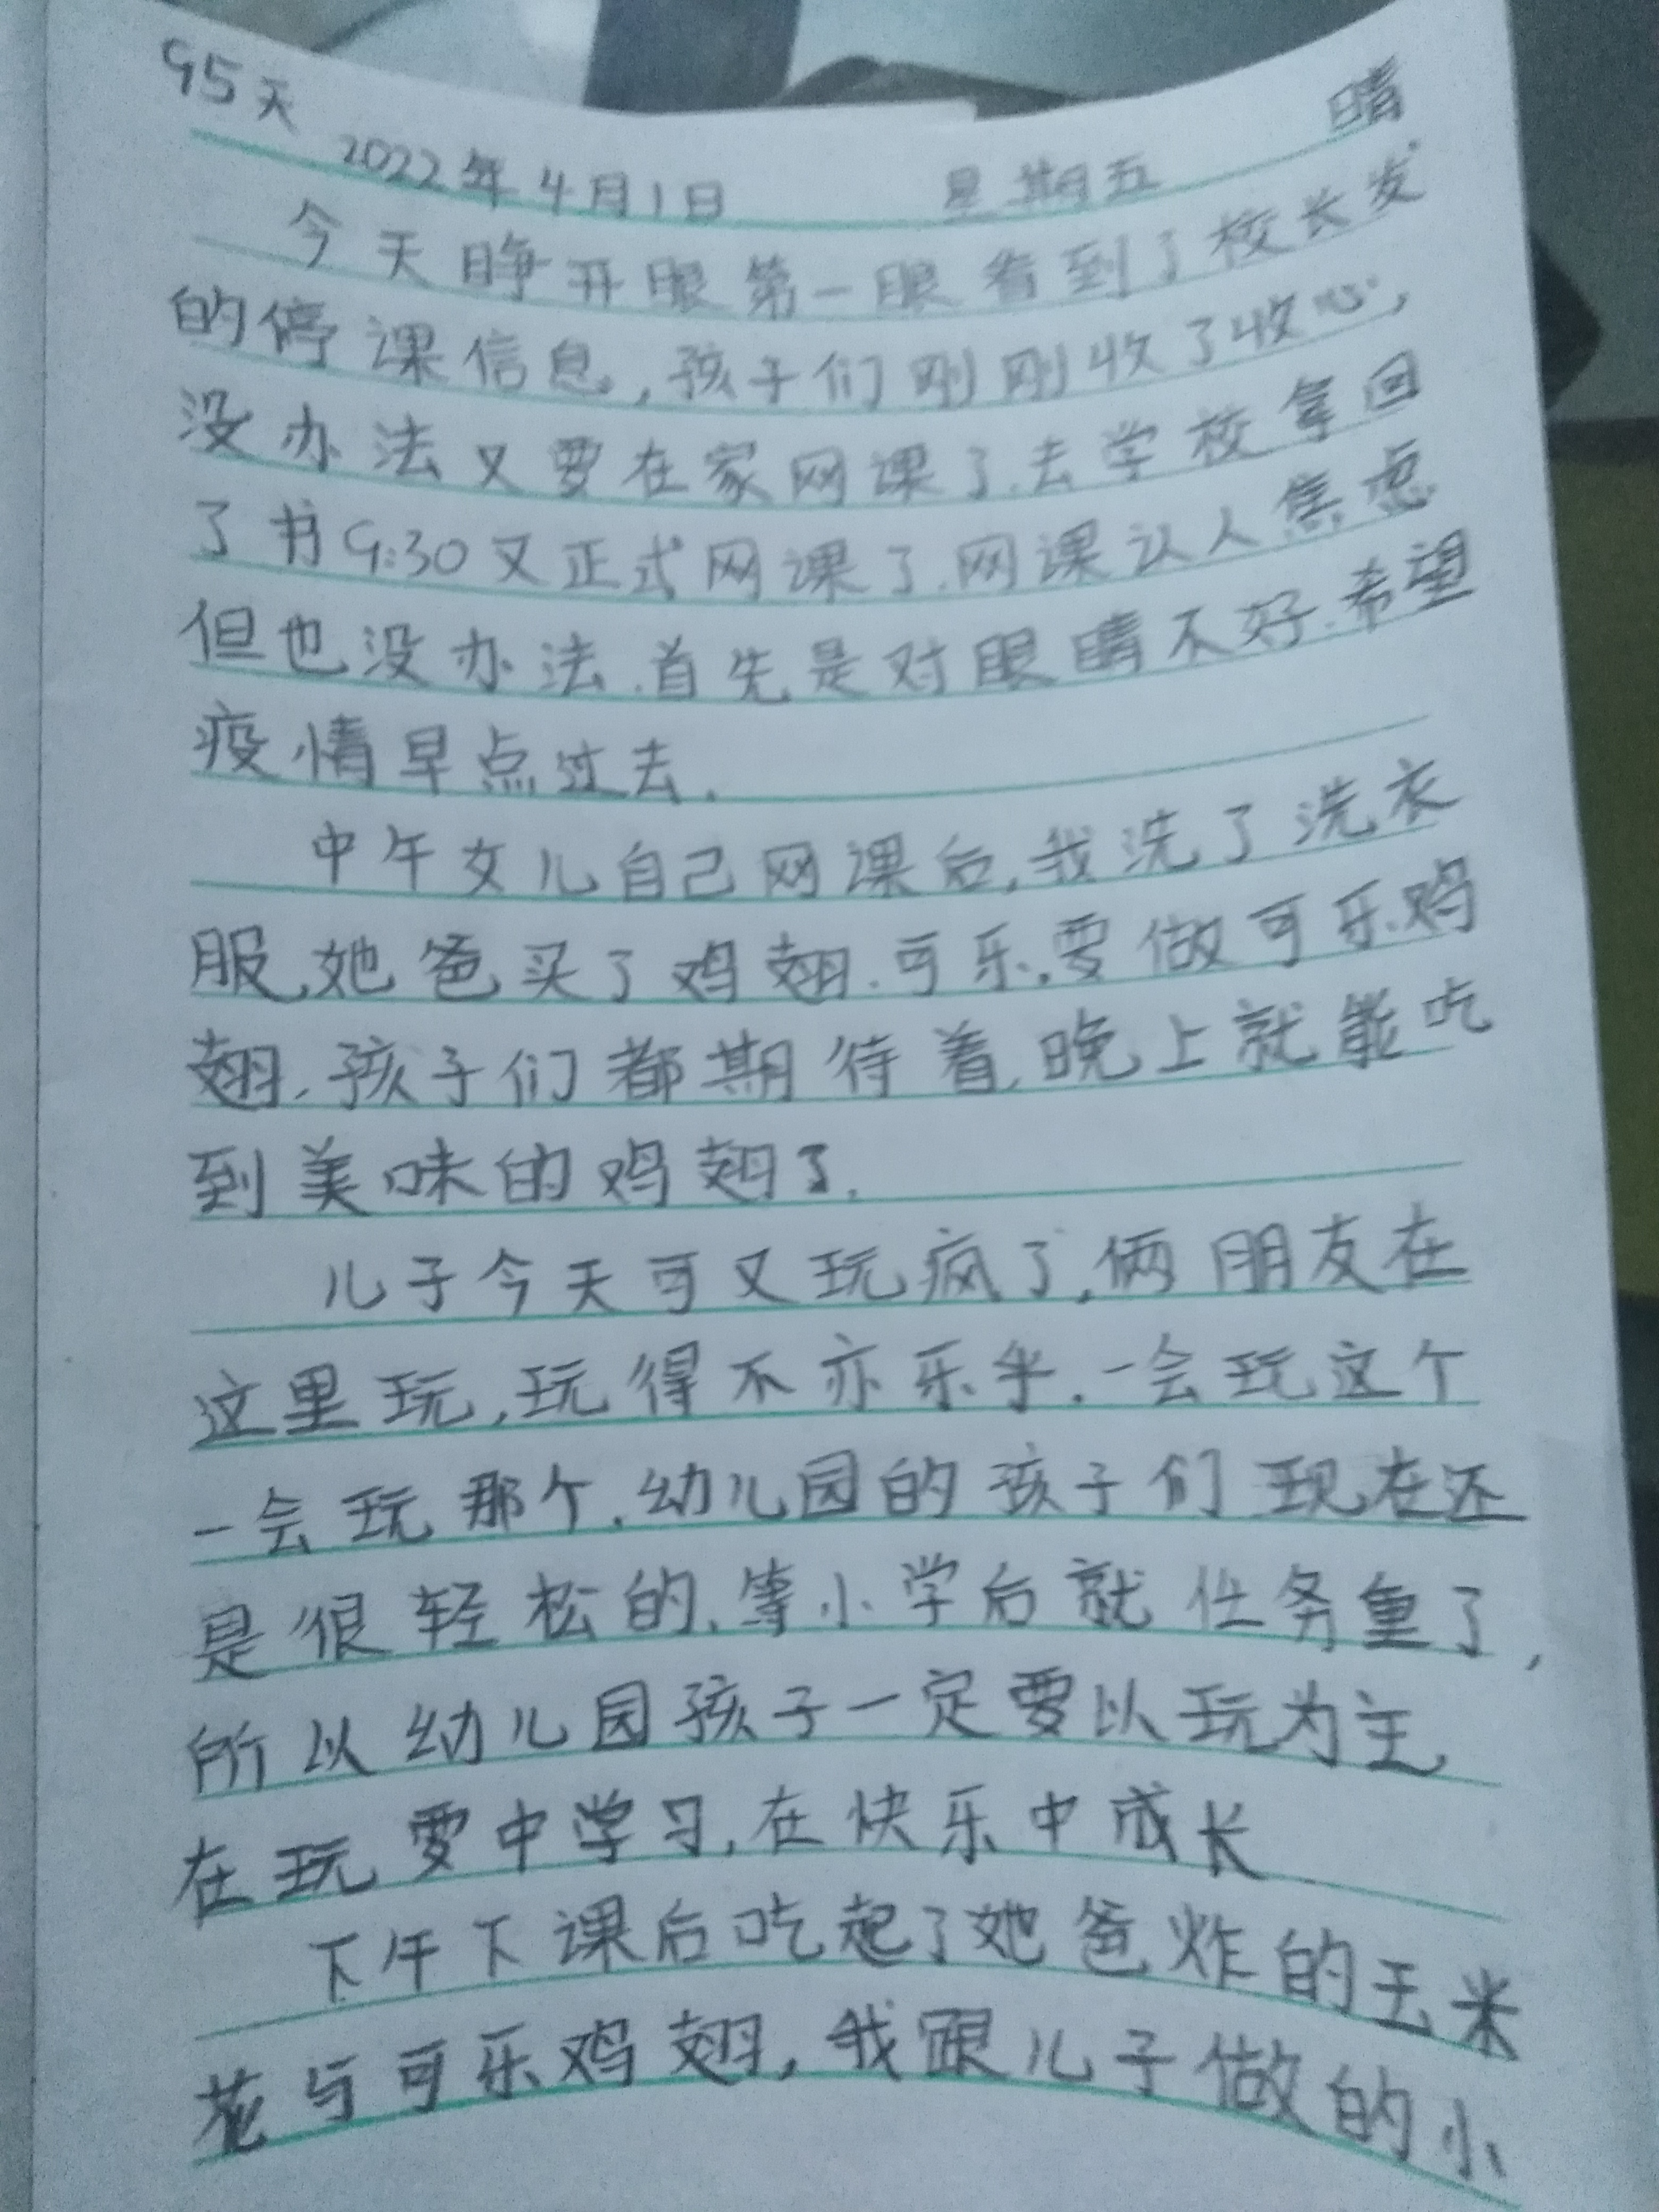 95天 晴
2022年4月1日 星期五
今天睁开眼第一眼看到了校长发
的停课信息,孩子们刚刚收了收心,
没办法又要在家网课了.去学校拿回
了书9:30又正式网课了.网课认人焦虑
但也没办法.首先是对眼睛不好.希望
疫情早点过去.
中午女儿自己网课后,我洗了洗衣
服,她爸买了鸡翅.可乐,要做可乐鸡
翅.孩子们都期待着,晚上就能吃
到美味的鸡翅了.
儿子今天可又玩疯了,俩朋友在
这里玩,玩得不亦乐乎.一会玩这个
一会玩那个.幼儿园的孩子们现在还
是很轻松的.等小学后就任务重了,
所以幼儿园孩子一定要以玩为主,
在玩耍中学习,在快乐中成长
下午下课后吃起了她爸炸的玉米
花与可乐鸡翅,我跟儿子做的小